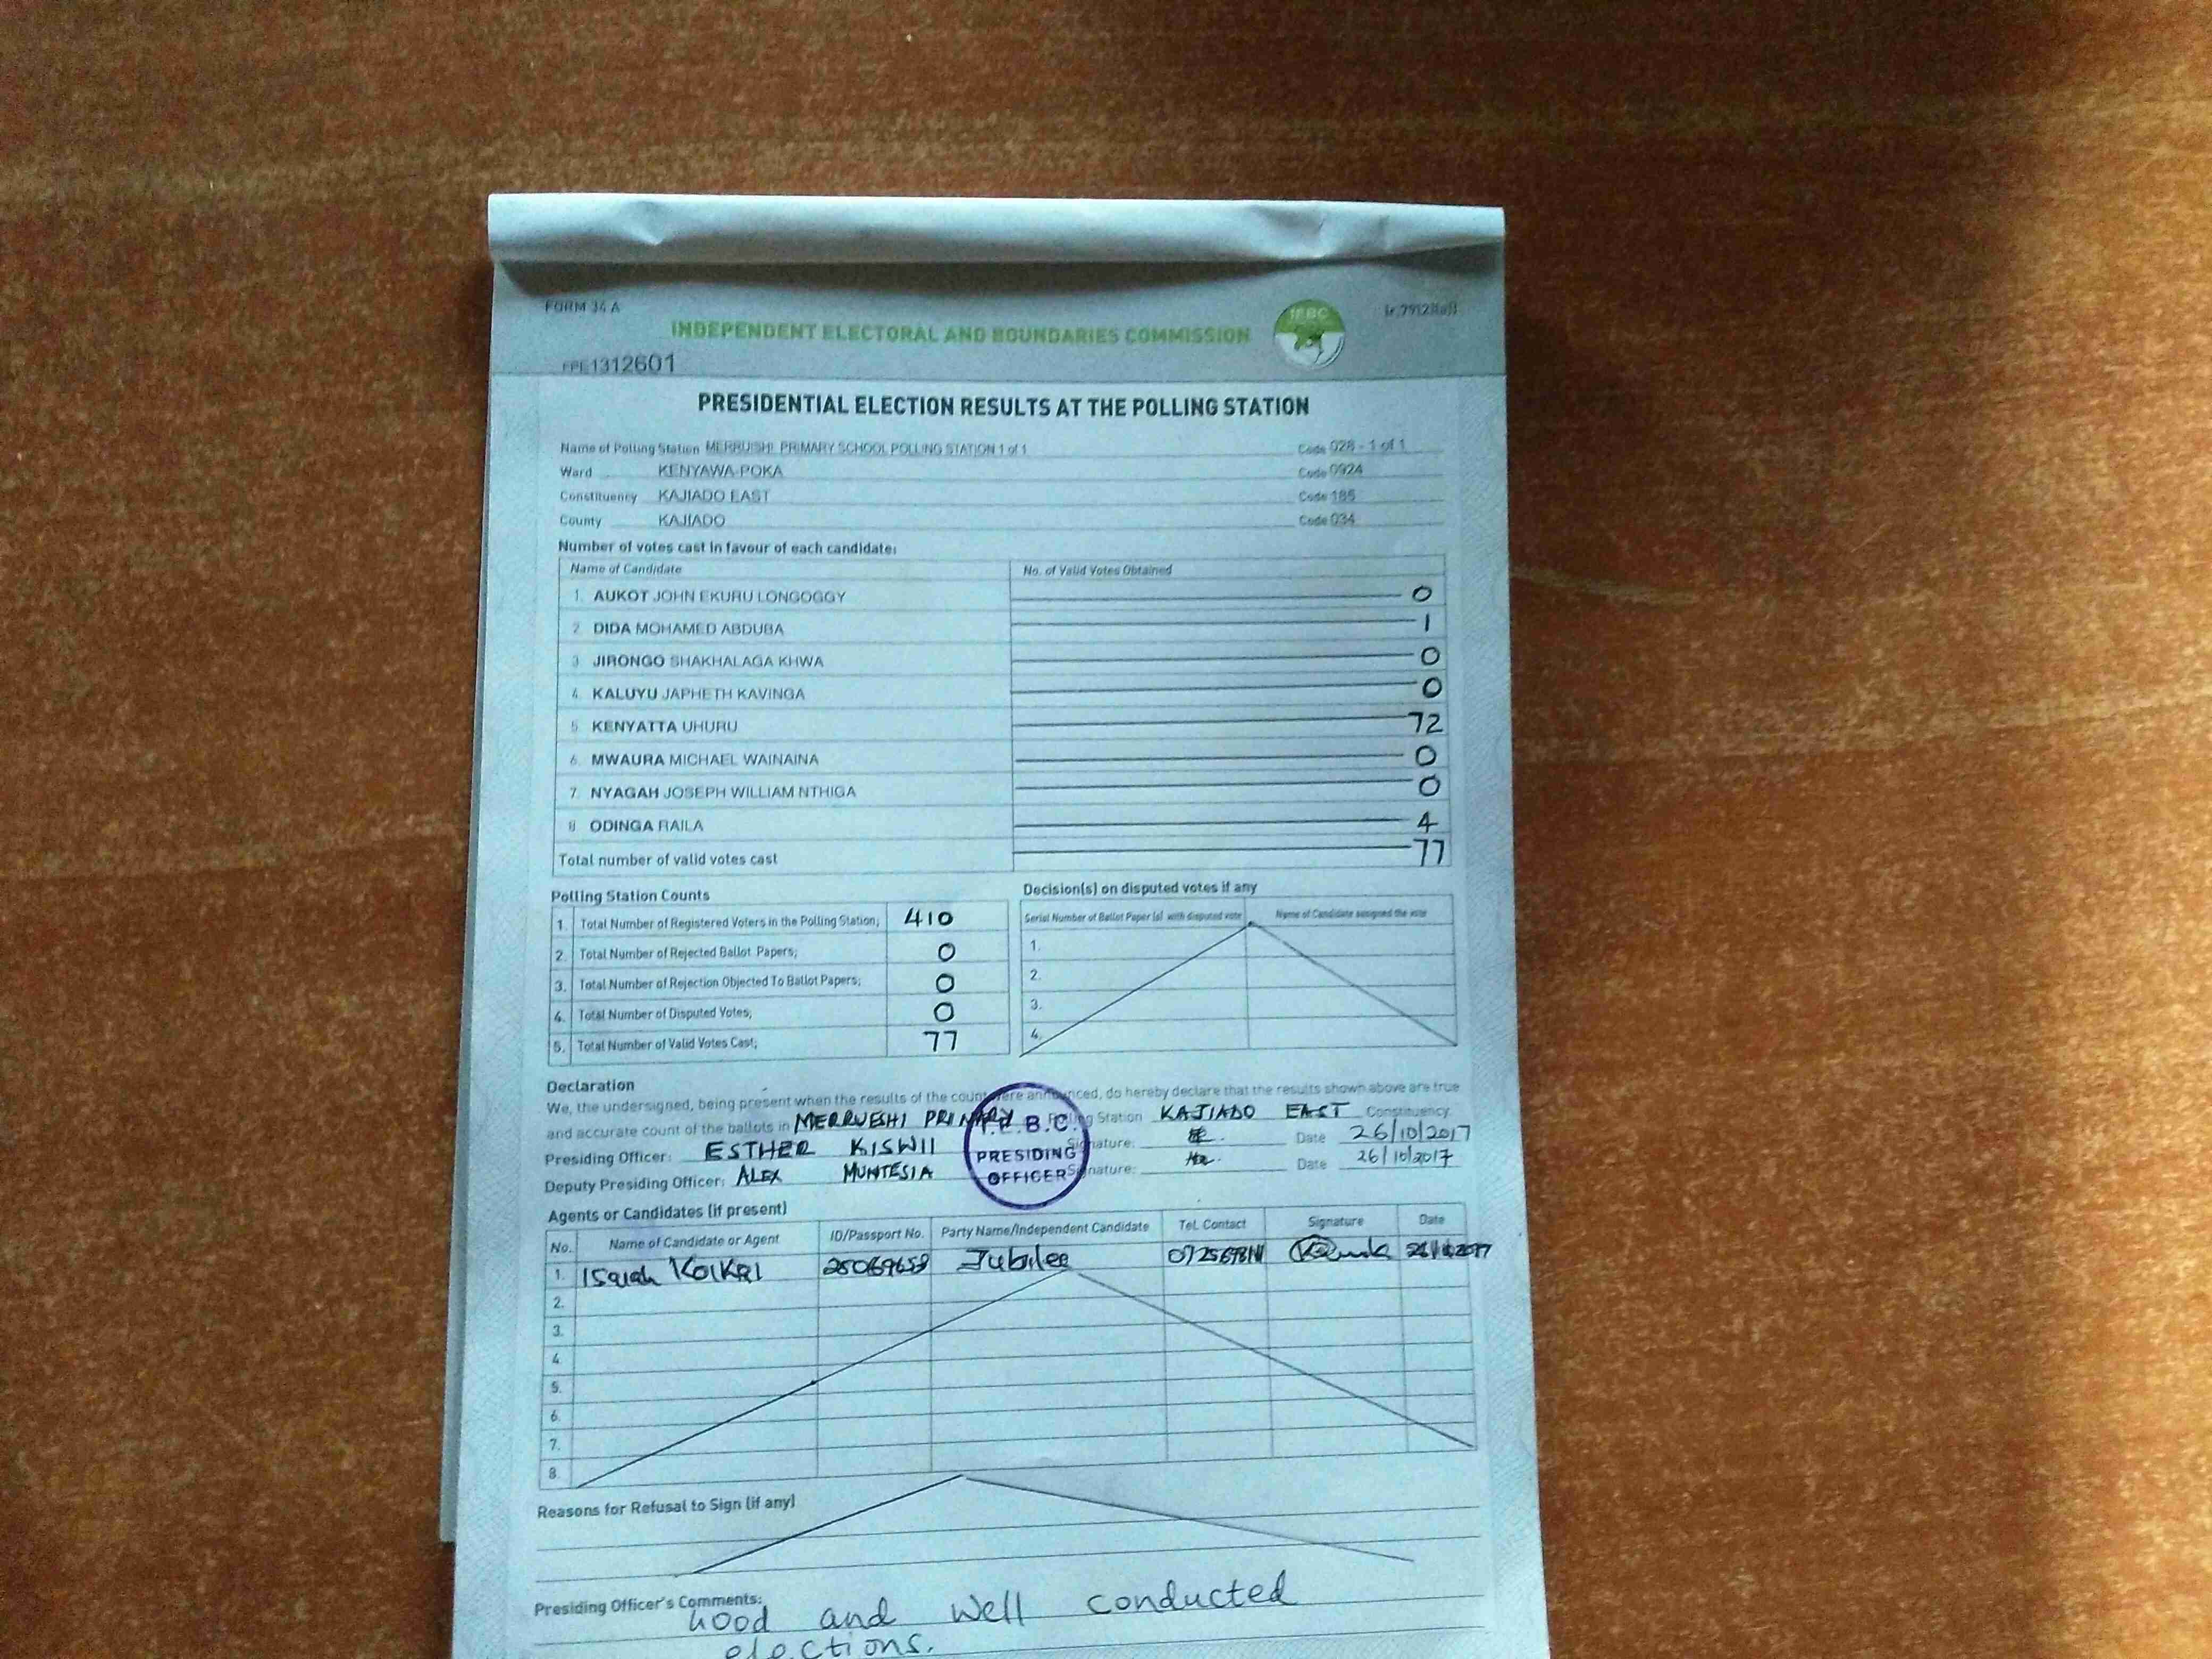 FORM 34 A
IEBC
INDEPENDENT ELECTORAL AND BOUNDARIES COMMISSION
1312601
PRESIDENTIAL ELECTION RESULTS AT THE POLLING STATION
Name of Polling Station MERRUISHI PRIMARY SCHOOL POLLING STATION 1 of 1 Code 028 - 1 of 1
Ward KENYAWA-POKA Code 0924
Constituency KAJIADO EAST Code 185
County KAJIADO Code 034
Number of votes cast in favour of each candidate:
Name of Candidate No. of Valid Votes Obtained
1. AUKOT JOHN EKURU LONGOGGY 0
2. DIDA MOHAMED ABDUBA 1
3. JIRONGO SHAKHALAGA KHWA 0
4. KALUYU JAPHETH KAVINGA 0
5. KENYATTA UHURU 72
6. MWAURA MICHAEL WAINAINA 0
7. NYAGAH JOSEPH WILLIAM NTHIGA 0
8. ODINGA RAILA 4
Total number of valid votes cast 77
Polling Station Counts
1. Total Number of Registered Voters in the Polling Station; 410
2. Total Number of Rejected Ballot Papers; 0
3. Total Number of Rejection Objected To Ballot Papers; 0
4. Total Number of Disputed Votes; 0
5. Total Number of Valid Votes Cast; 77
Decision(s) on disputed votes if any
Serial Number of Ballot Paper (s) with disputed vote Name of Candidate assigned the vote
1.
2.
3.
4.
Declaration
We, the undersigned, being present when the results of the count were announced, do hereby declare that the results shown above are true
and accurate count of the ballots in MERRUESHI PRIMARY Polling Station KAJIADO EAST Constituency
Presiding Officer: ESTHER KISWII Signature: Date 26/10/2017
Deputy Presiding Officer: ALEX MUNTESIA Signature: Date 26/10/2017
I.E.B.C.
PRESIDING
OFFICER
Agents or Candidates (if present)
No. Name of Candidate or Agent ID/Passport No. Party Name/Independent Candidate Tel. Contact Signature Date
1. Isaiah Jubilee
2.
3.
4.
5.
6.
7.
8.
Reasons for Refusal to Sign (if any)
Presiding Officer's Comments:
Good and well conducted
elections.